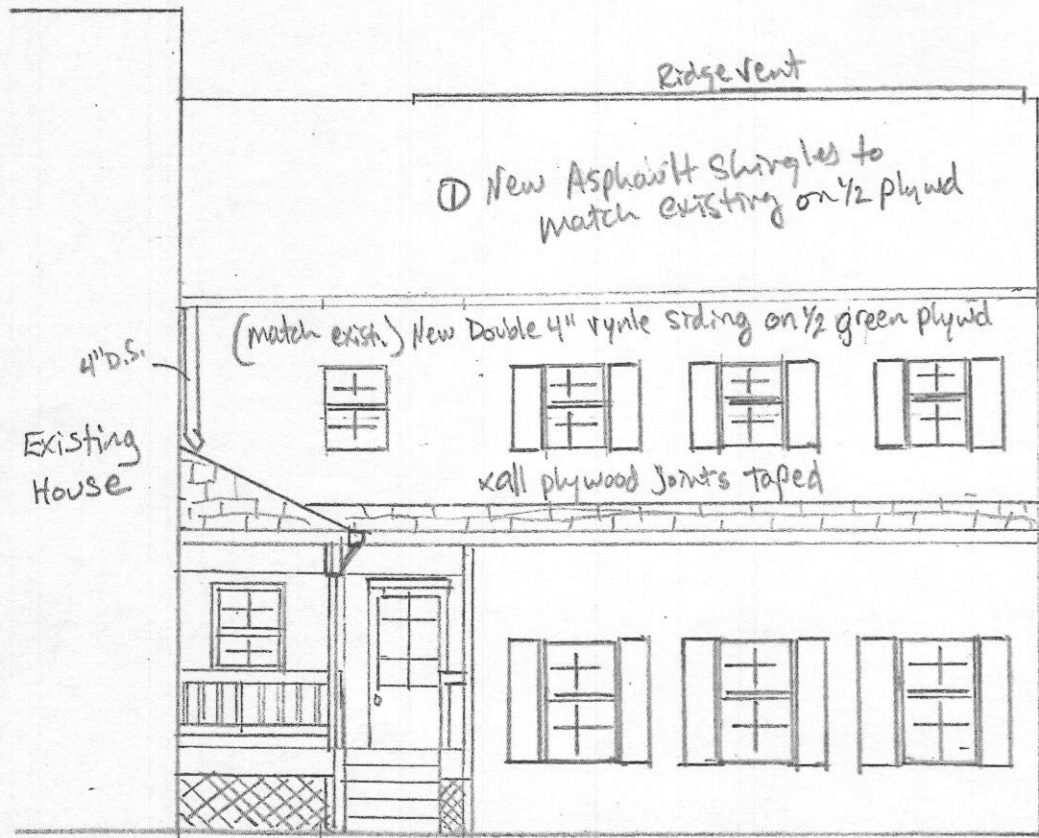 Ridge vent
① New Asphavlt Shingles to
match existing on ½ plywd
(match exist.) New Double 4" vynle siding on ½ green plywd
4" D.S.
Existing
House
xall plywood joints taped